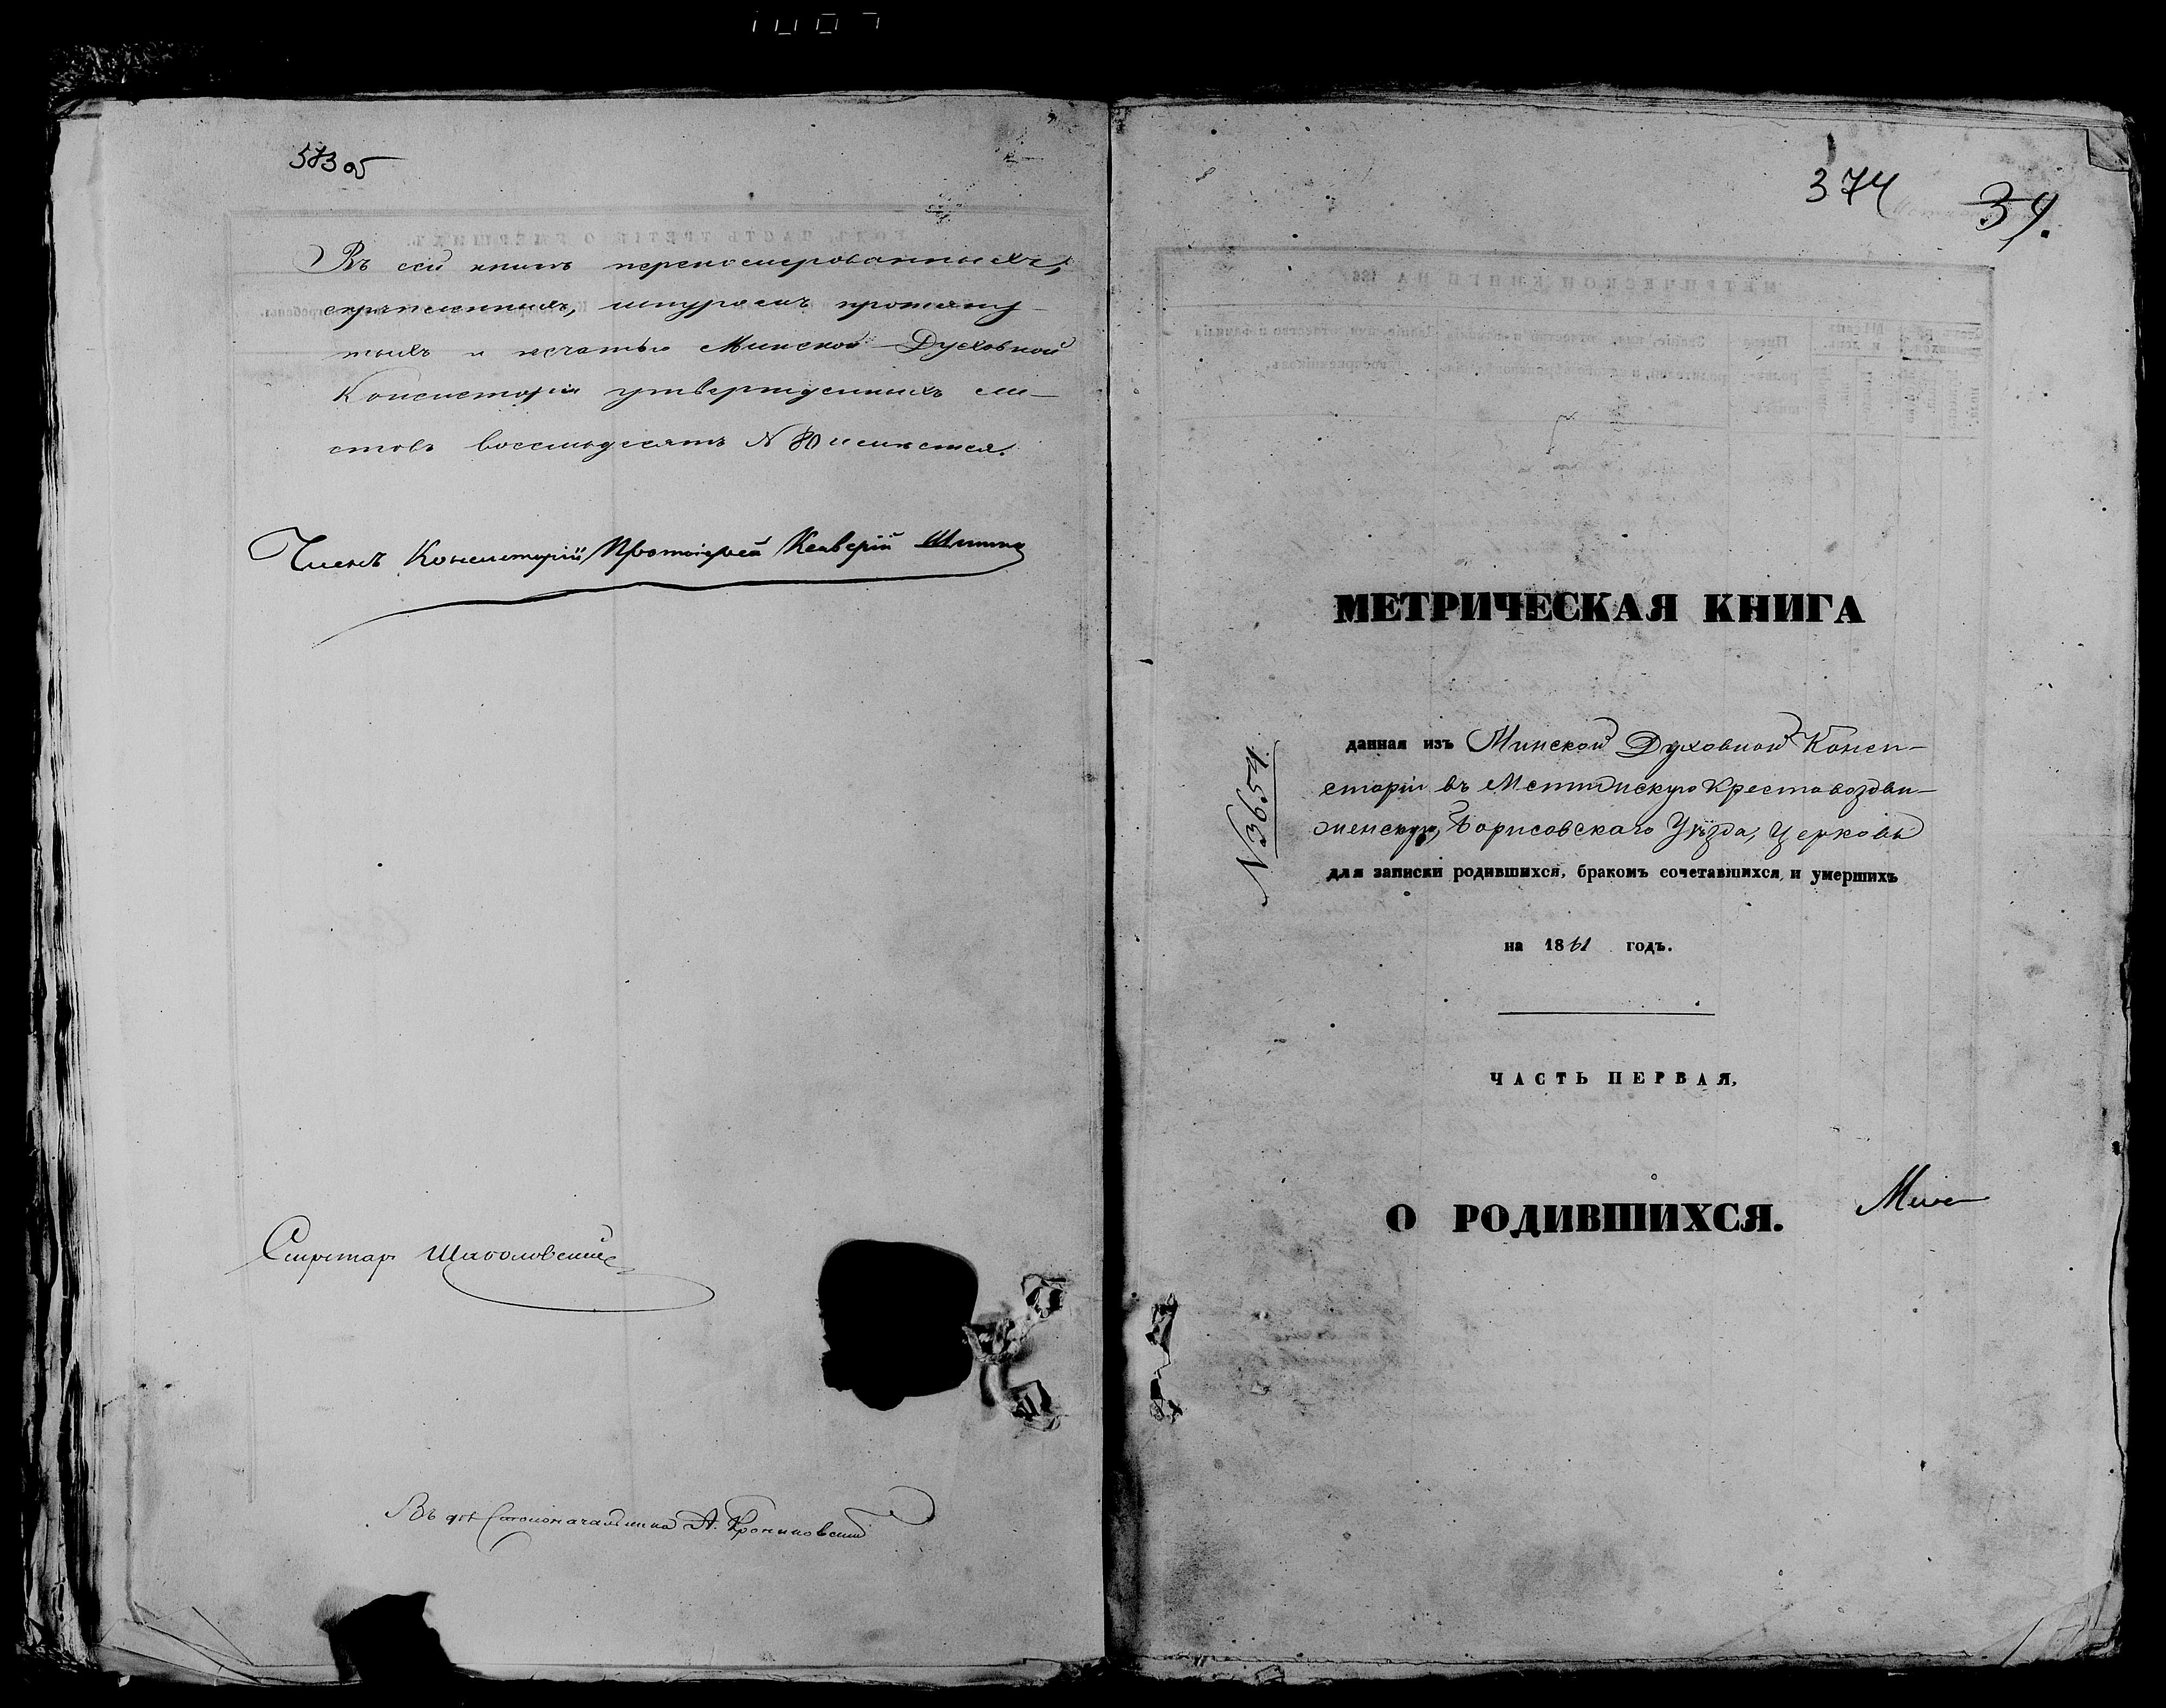 Въ сей книгѣ перенумерованныхъ,
скрѣпленныхъ, шнуромъ протяну-
тыхъ и печатью Минской Духовной
Консисторіи утвержденныхъ ли-
стовъ восемьдесятъ N 80 имѣется.
Членъ Консисторіи Протоіерей
Секретарь
Въ д. Столоначальника А.
374
МЕТРИЧЕСКАЯ КНИГА
данная изъ Минской Духовной Конси-
сторіи въ Крестовоздви-
женскую, Борисовскаго Уѣзда, Церковь
для записки родившихся, бракомъ сочетавшихся, и умершихъ
на 1861 годъ.
N 3654.
ЧАСТЬ ПЕРВАЯ,
О РОДИВШИХСЯ.